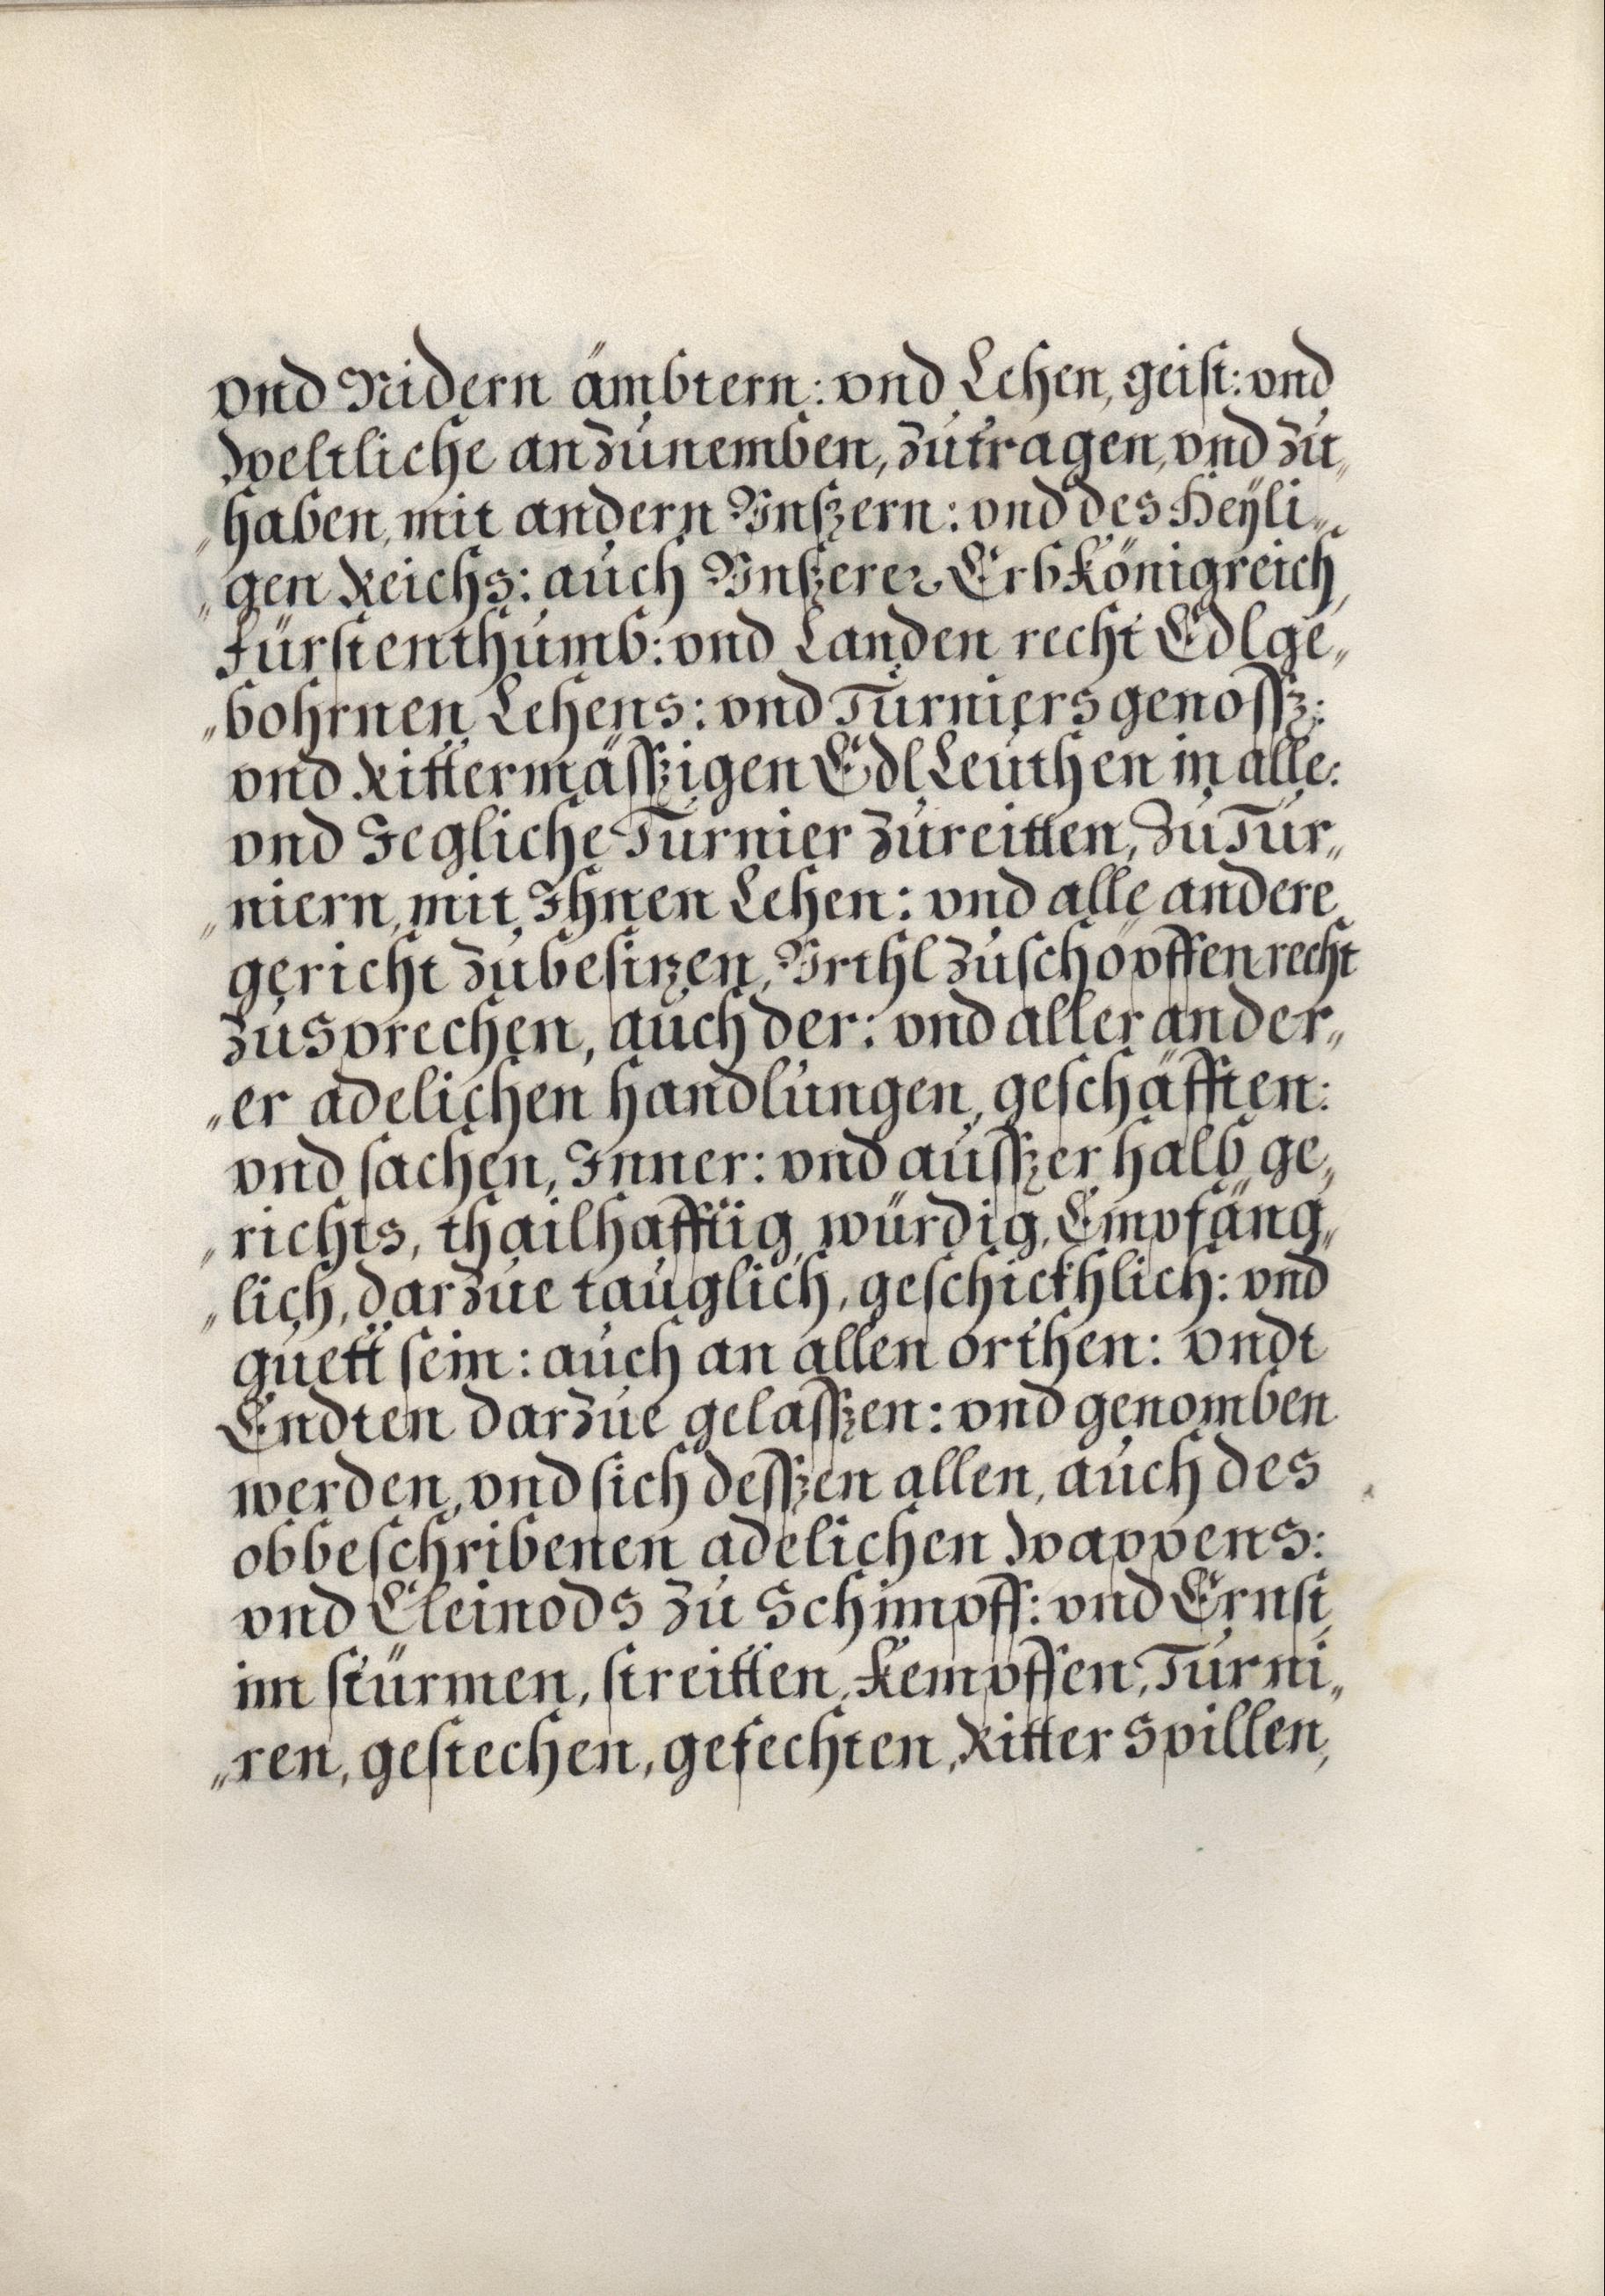 vnd Nidern ämbtern: vnd Lehen, geist: vnd
Weltliche anzunemben, zutragen, vnd zu„
„haben, mit andern Vnßern: vnd des Heÿli„
„gen Reichs: auch Vnßerer Erbkönigreich,
fürstenthumb: vnd Landen recht Edlge„
„bohrnen Lehens: vnd Turniers genossz:
vnd Rittermässzigen Edl Leuthen in alle:
vnd Jegliche Turnier zureitten, zu Tur„
„niern, mit Ihnen Lehen: vnd alle andere
gericht zubesitzen, Vrthl zuschöpffen recht
zusprechen, auch der: vnd aller ander„
„er adelichen handlungen, geschäfften:
vnd sachen, Inner: vnd ausszer halb ge„
„richts, thailhafftig, würdig, Empfäng„
„lich, darzue tauglich, geschickhlich: vnd
guett sein: auch an allen orthen: vndt
Endten darzue gelasszen: vnd genomben
werden, vnd sich desszen allen, auch des
obbeschribenen adelichen Wappens:
vnd Cleinods zu Schimpff: vnd Ernst,
im stürmen, streitten, kempffen, Turni„
„ren, gestechen, gefechten, Ritter Spillen,